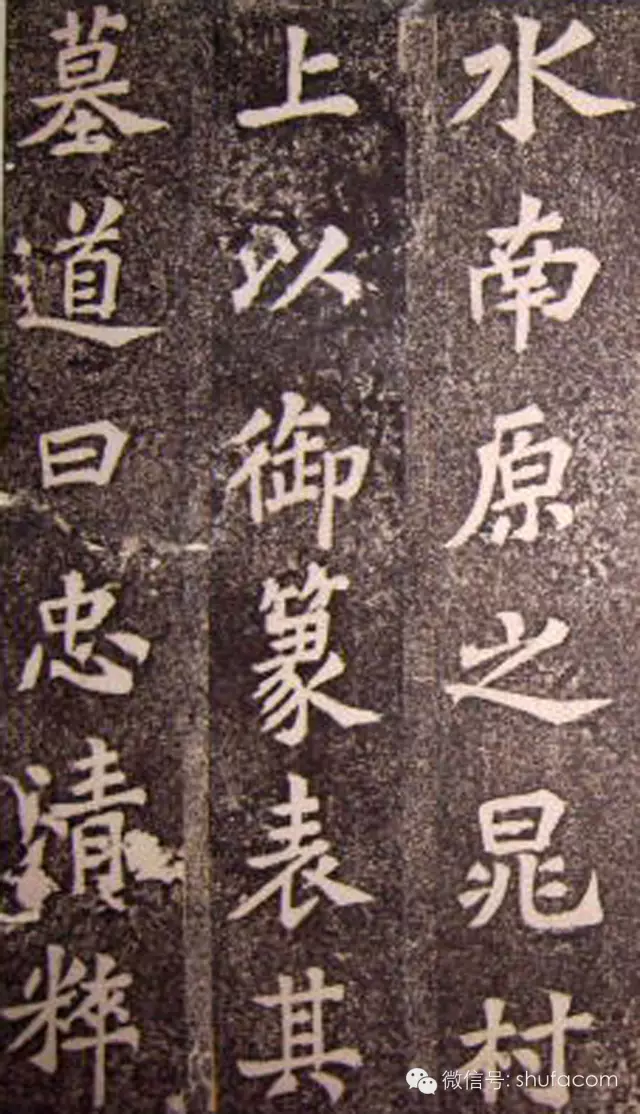 水南原之晁村
上以御篆表其
墓道曰忠清粹
微信号: shufacom